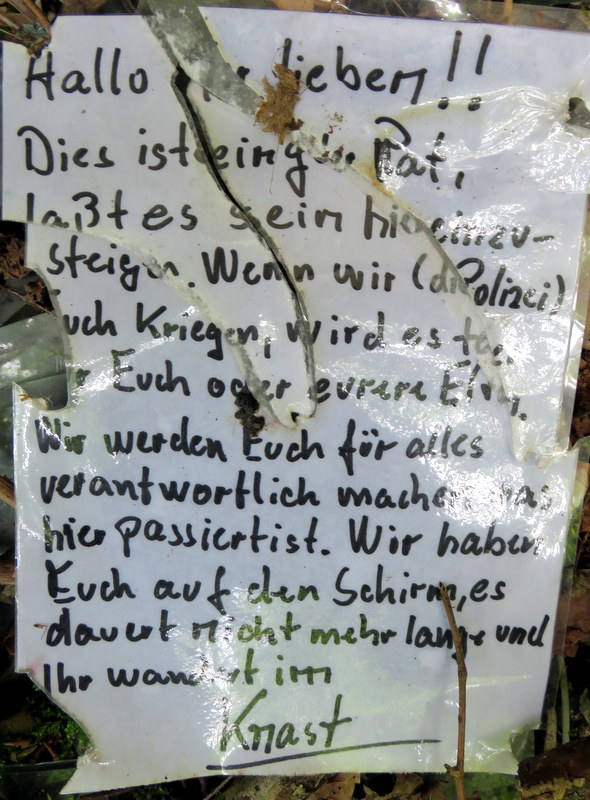 Hallo lieben!!
Dies ist ein Rat,
laßt es sein hier einzu-
steigen. Wenn wir (die Polizei)
Euch Kriegen, wird es
Euch oder eurere
Wir werden Euch für alles
verantwortlich machen was
hier passiert ist. Wir haben
Euch auf den Schirm, es
dauert nicht mehr lange und
Ihr wandert im
Knast